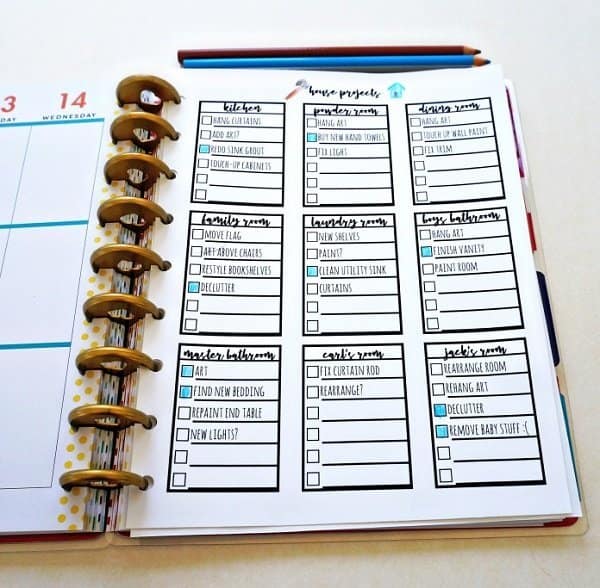 3
14
WEDNESDAY
house projects
kitchen
HANG CURTAINS
ADD ART?
REDO SINK GROUT
TOUCH-UP CABINETS
powder room
HANG ART
BUY NEW HAND TOWELS
FIX LIGHT
dining room
HANG ART
TOUCH UP WALL PAINT
FIX TRIM
family room
MOVE FLAG
ART ABOVE CHAIRS
RESTYLE BOOKSHELVES
DECLUTTER
laundry room
NEW SHELVES
PAINT?
CLEAN UTILITY SINK
CURTAINS
boys bathroom
HANG ART
FINISH VANITY
PAINT ROOM
master bathroom
ART
FIND NEW BEDDING
REPAINT END TABLE
NEW LIGHTS?
carl's room
FIX CURTAIN ROD
REARRANGE?
jack's room
REARRANGE ROOM
REHANG ART
DECLUTTER
REMOVE BABY STUFF :(